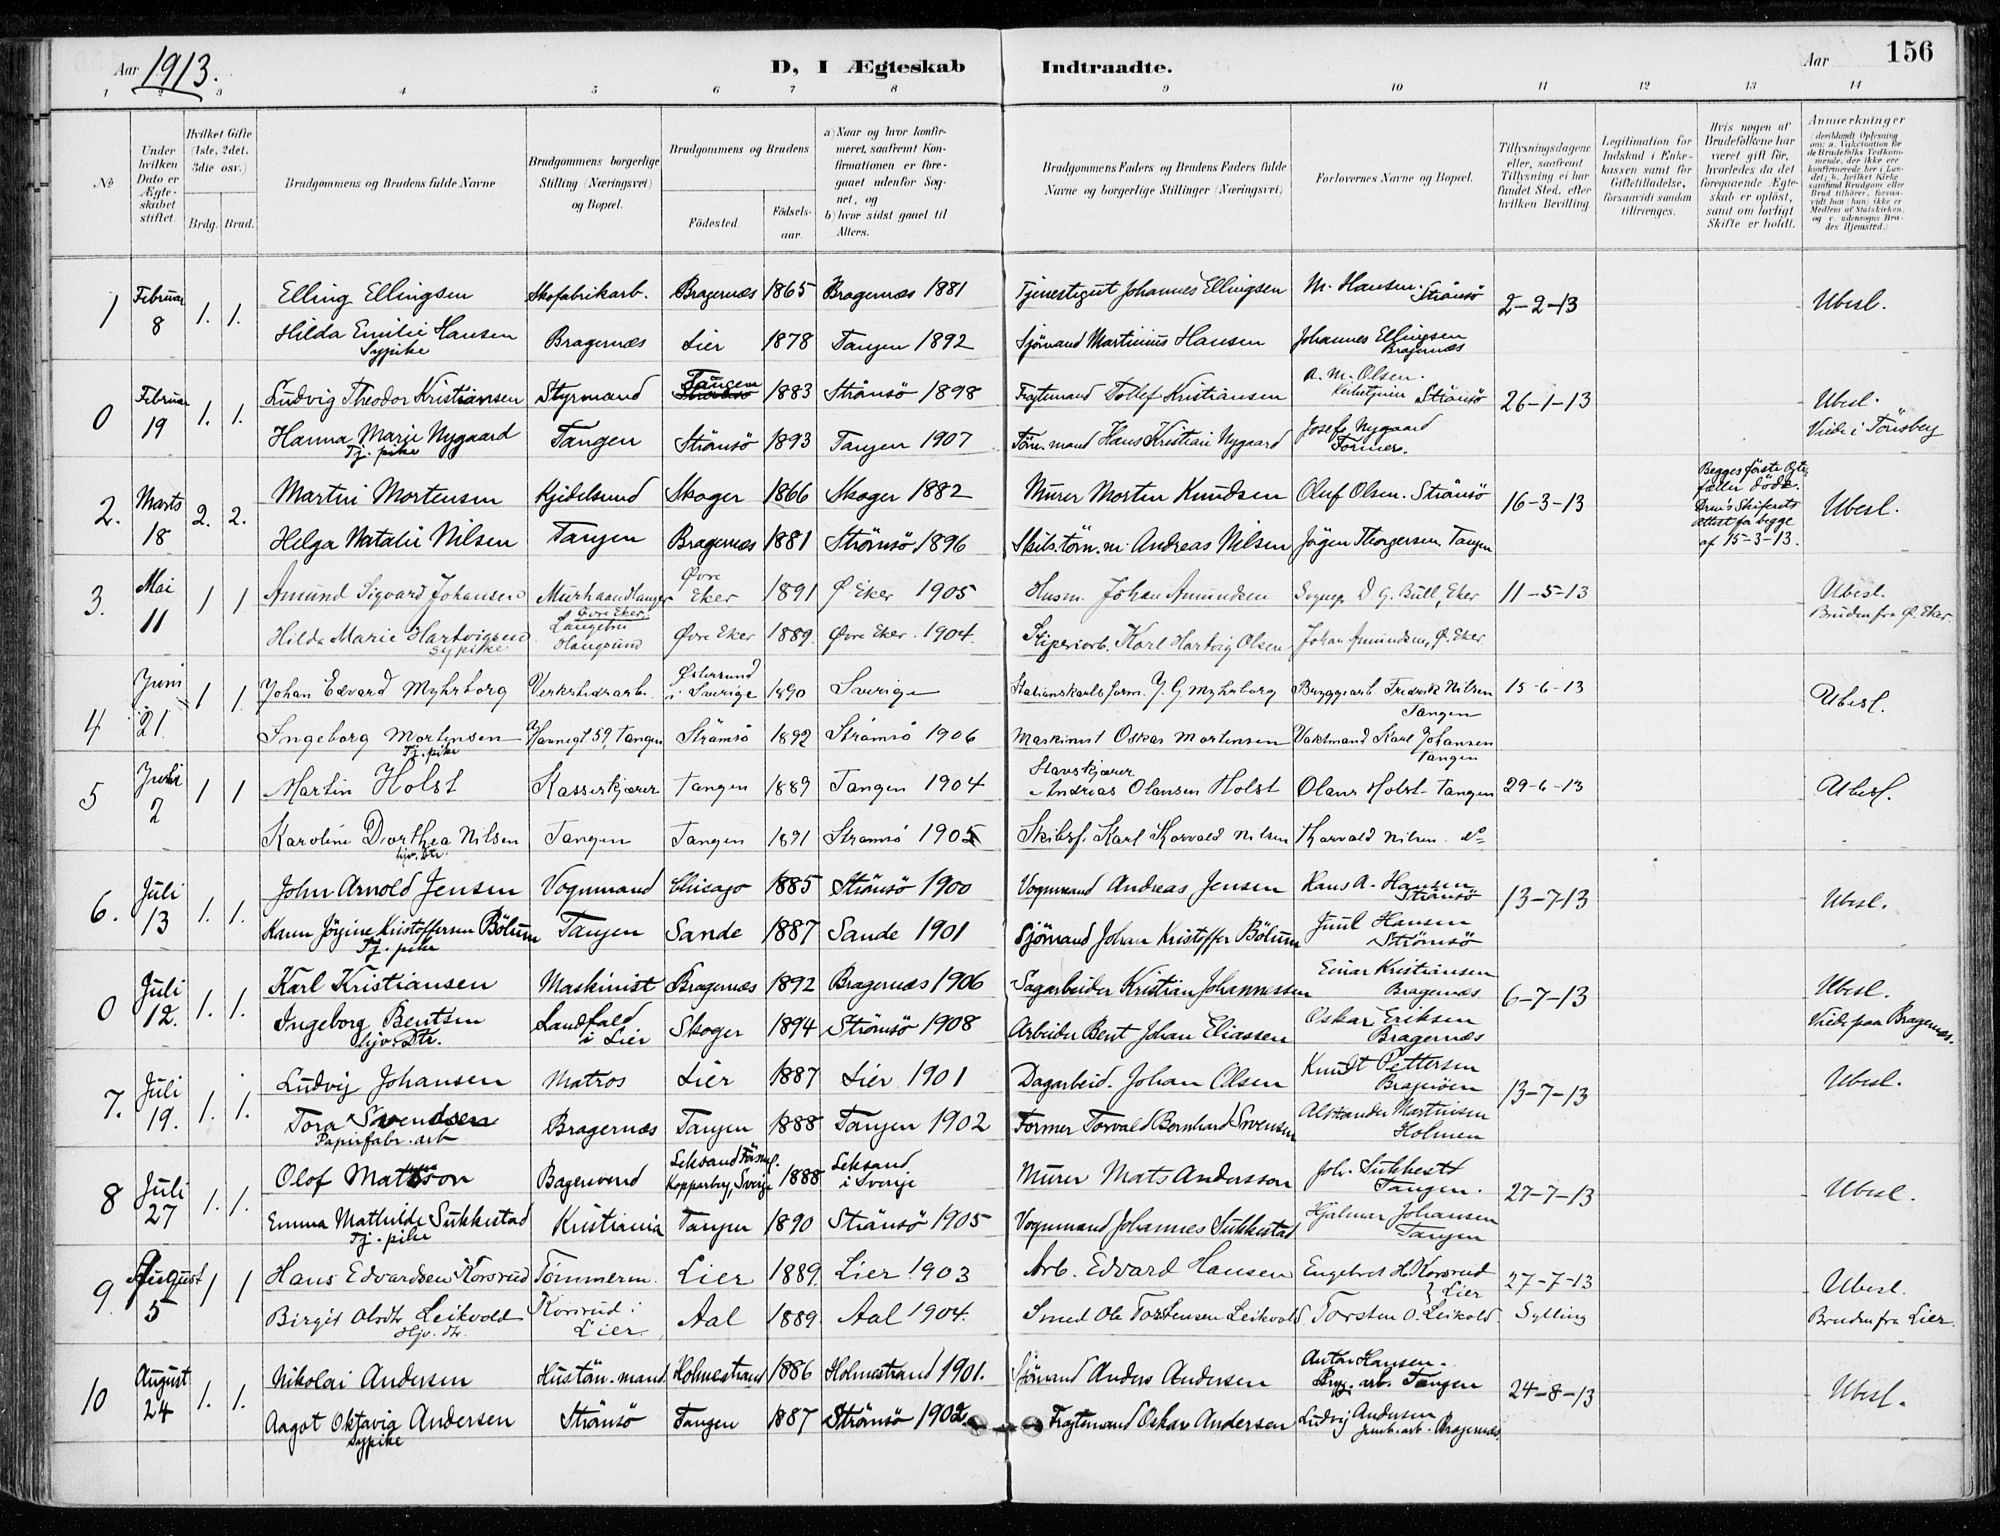 Aar 1913.
D, I Ægteskab Indtraadte.
Aar 156
1 2 3 4 5 6 7 8 9 10 11 12 13 14
No
Under hvilken Dato er Ægteskabet stiftet.
Hvilket Gifte (1ste, 2det, 3die osv.)
Brdg. Brud.
Brudgommens og Brudens fulde Navne
Brudgommens borgerlige Stilling (Næringsvei) og Bopæl.
Brudgommens og Brudens
Fødested.
Fødselsaar.
a) Naar og hvor konfirmeret, saafremt Konfirmationen er foregaaet udenfor Sognet, og
b) hvor sidst gaaet til Alters.
Brudgommens Faders og Brudens Faders fulde Navne og borgerlige Stillinger (Næringsvei)
Forlovernes Navne og Bopæl.
Tillysningsdagene eller, saafremt Tillysning ei har fundet Sted, efter hvilken Bevilling.
Legitimation for Indskud i Enkekassen samt for Giftetilladelse, forsaavidt saadan tiltrænges.
Hvis nogen af Brudefolkene har været gift før, hvorledes da det foregaaende Ægteskab er opløst, samt om lovligt Skifte er holdt.
Anmærkninger (deriblandt Oplysning om: a. Vakcination for de Brudefolks Vedkommende, der ikke ere konfirmerede her i Landet; b. hvilket Kirkesamfund Brudgom eller Brud tilhører, forsaavidt han (hun) ikke er Medlem af Statskirken, og c. udensogns Brudes Hjemsted.)
1 Februar 8 1. 1. Elling Ellingsen Skofabrikarb. Bragernæs 1865 Bragernæs 1881 Tjenestegut Johannes Ellingsen M. Hansen. Strömsö 2-2-13 Ubesl.
Hilda Emilie Hansen Sypike Bragernæs Lier 1878 Tangen 1892 Sjömand Martinius Hansen Johannes Ellingsen Bragernæs
0 Februar 19 1. 1. Ludvig Theodor Kristiansen Styrmand Tangen Strömsö 1883 Strömsö 1898 Fragtemand Kristiansen A. M. Olsen. Strömsö 26-1-13 Ubesl. Viede i Tönsberg
Hanna Marie Nygaard Tj. pike Tangen Strömsö 1893 Tangen 1907 Töm.mand Hans Kristian Nygaard Josef Nygaard Former.
2. Marts 18 2. 2. Martin Mortensen Kjedelsmed Skoger 1866 Skoger 1882 Murer Morten Knudsen Oluf Olsen. Strömsö 16-3-13 Begges første Ægtefæller döde. Drm's Skifterets attest for begge af 15-3-13. Ubesl.
Helga Natalie Nilsen Tangen Bragernæs 1881 Strömsö 1896 Skibs.töm.m. Andreas Nilsen Jörgen Thorgersen. Tangen
3. Mai 11 1 1 Amund Sigvard Johansen Murhaandlanger Øvre Eker Øvre Eker 1891 Ø. Eker 1905 Husm. Johan Amundsen Sognep. D. G. Bull, Eker 11-5-13 Ubesl. Bruden fra Ø. Eker.
Hilda Marie Hartvigsen Sypike Langebru Hougsund Øvre Eker 1889. Øvre Eker. 1904. Sliperiarb. Karl Hartvig Olsen Johan Amundsen, Ø. Eker
4 Juni 21. 1 1. Johan Edvard Myhrborg Verkstedsarb. Östersund i Sverige 1890 Sverige Stationskarlsform. J. G Myhrborg Bryggearb Fredrik Nilsen Tangen 15-6-13 Ubesl.
Ingeborg Mortensen Tj. pike Havnegt 59, Tangen Strömsö 1892 Strömsö 1906 Maskinist Oskar Mortensen Vaktmand Karl Johansen Tangen
5 Juli 2 1 1 Martin Holst Kasserkjører Tangen 1889 Tangen 1904 Andreas Olausen Holst Olaus Holst Tangen 29-6-13 Ubesl.
Karoline Dorthea Nilsen hjv. Dtr. Tangen Tangen 1891 Strømsö 1905 Skibsf. Karl Thorvald Nilsen Thorvald Nilsen do
6. Juli 13 1. 1. John Arnold Jensen Vognmand Chicago 1885 Strömsö 1900 Vognmand Andreas Jensen Hans A. Hansen Strömsö 13-7-13 Ubesl.
Karen Jörgine Kristoffersen Bölum Tj. pike Tangen Sande 1887 Sande 1901 Sjömand Johan Kristoffer Bölum Juul Hansen Strömsö
0 Juli 12. 1. 1. Karl Kristiansen Maskinist Bragernæs 1892 Bragernæs 1906 Sagarbeider Kristian Johannessen Einar Kristiansen Bragernæs 6-7-13 Ubesl. Viede paa Bragernæs.
Ingeborg Bentsen hjv. Dtr. Landfald i Lier Skoger 1894 Strömsö 1908 Arbeider Bent Johan Eliassen Oskar Eriksen Bragernæs
7. Juli 19. 1. 1. Ludvig Johansen Matros Lier 1887 Lier 1901 Dagarbeid. Johan Olsen Knudt Pettersen Bragernæs 13-7-13 Ubesl.
Tora Svendsen Papirfabr. arb Bragernæs Tangen 1888 Tangen 1902 Former Torvald Bernhard Svensen Alexander Martinsen Holmen
8 Juli 27 1. 1. Olof Mattson Bagersvend Leksand Kopparberg, Sverige 1888 Leksand i Sverige Murer Mats Andersson Joh. Sukkestd Tangen. 27-7-13 Ubesl.
Emma Mathilde Sukkestad Tj. pike Kristiania Tangen 1890 Strömsö 1905 Vognmand Johannes Sukkestad Hjalmar Johansen Tangen
9. August 5 1 1 Hans Edvardsen Korsrud Tömmerm. Lier 1889. Lier 1903 Arb. Edvard Hansen Engebret H. Korsrud } Lier 27-7-13 Ubesl.
Birgit Olsdtr Leikvold Hjv. dtr. Korsrud i Lier. Aal 1889. Aal 1904. Smed Ole Torstensen Leikvold. Torsten O. Leikvold. Sylling Bruden fra Lier
10 August 24 1. 1. Nikolai Andersen Hustöm.mand. Holmestrand 1886 Holmestrand 1901. Sjömand Anders Andersen Anton Hansen. Bryg. arb. Tangen 24-8-13 Ubesl.
Aagot Oktavia Andersen Sypike Strömsö Tangen 1887 Strömsö 1902 Fragtemand Oskar Andersen Ludvig Andersen jernb. arb. Bragernæs.